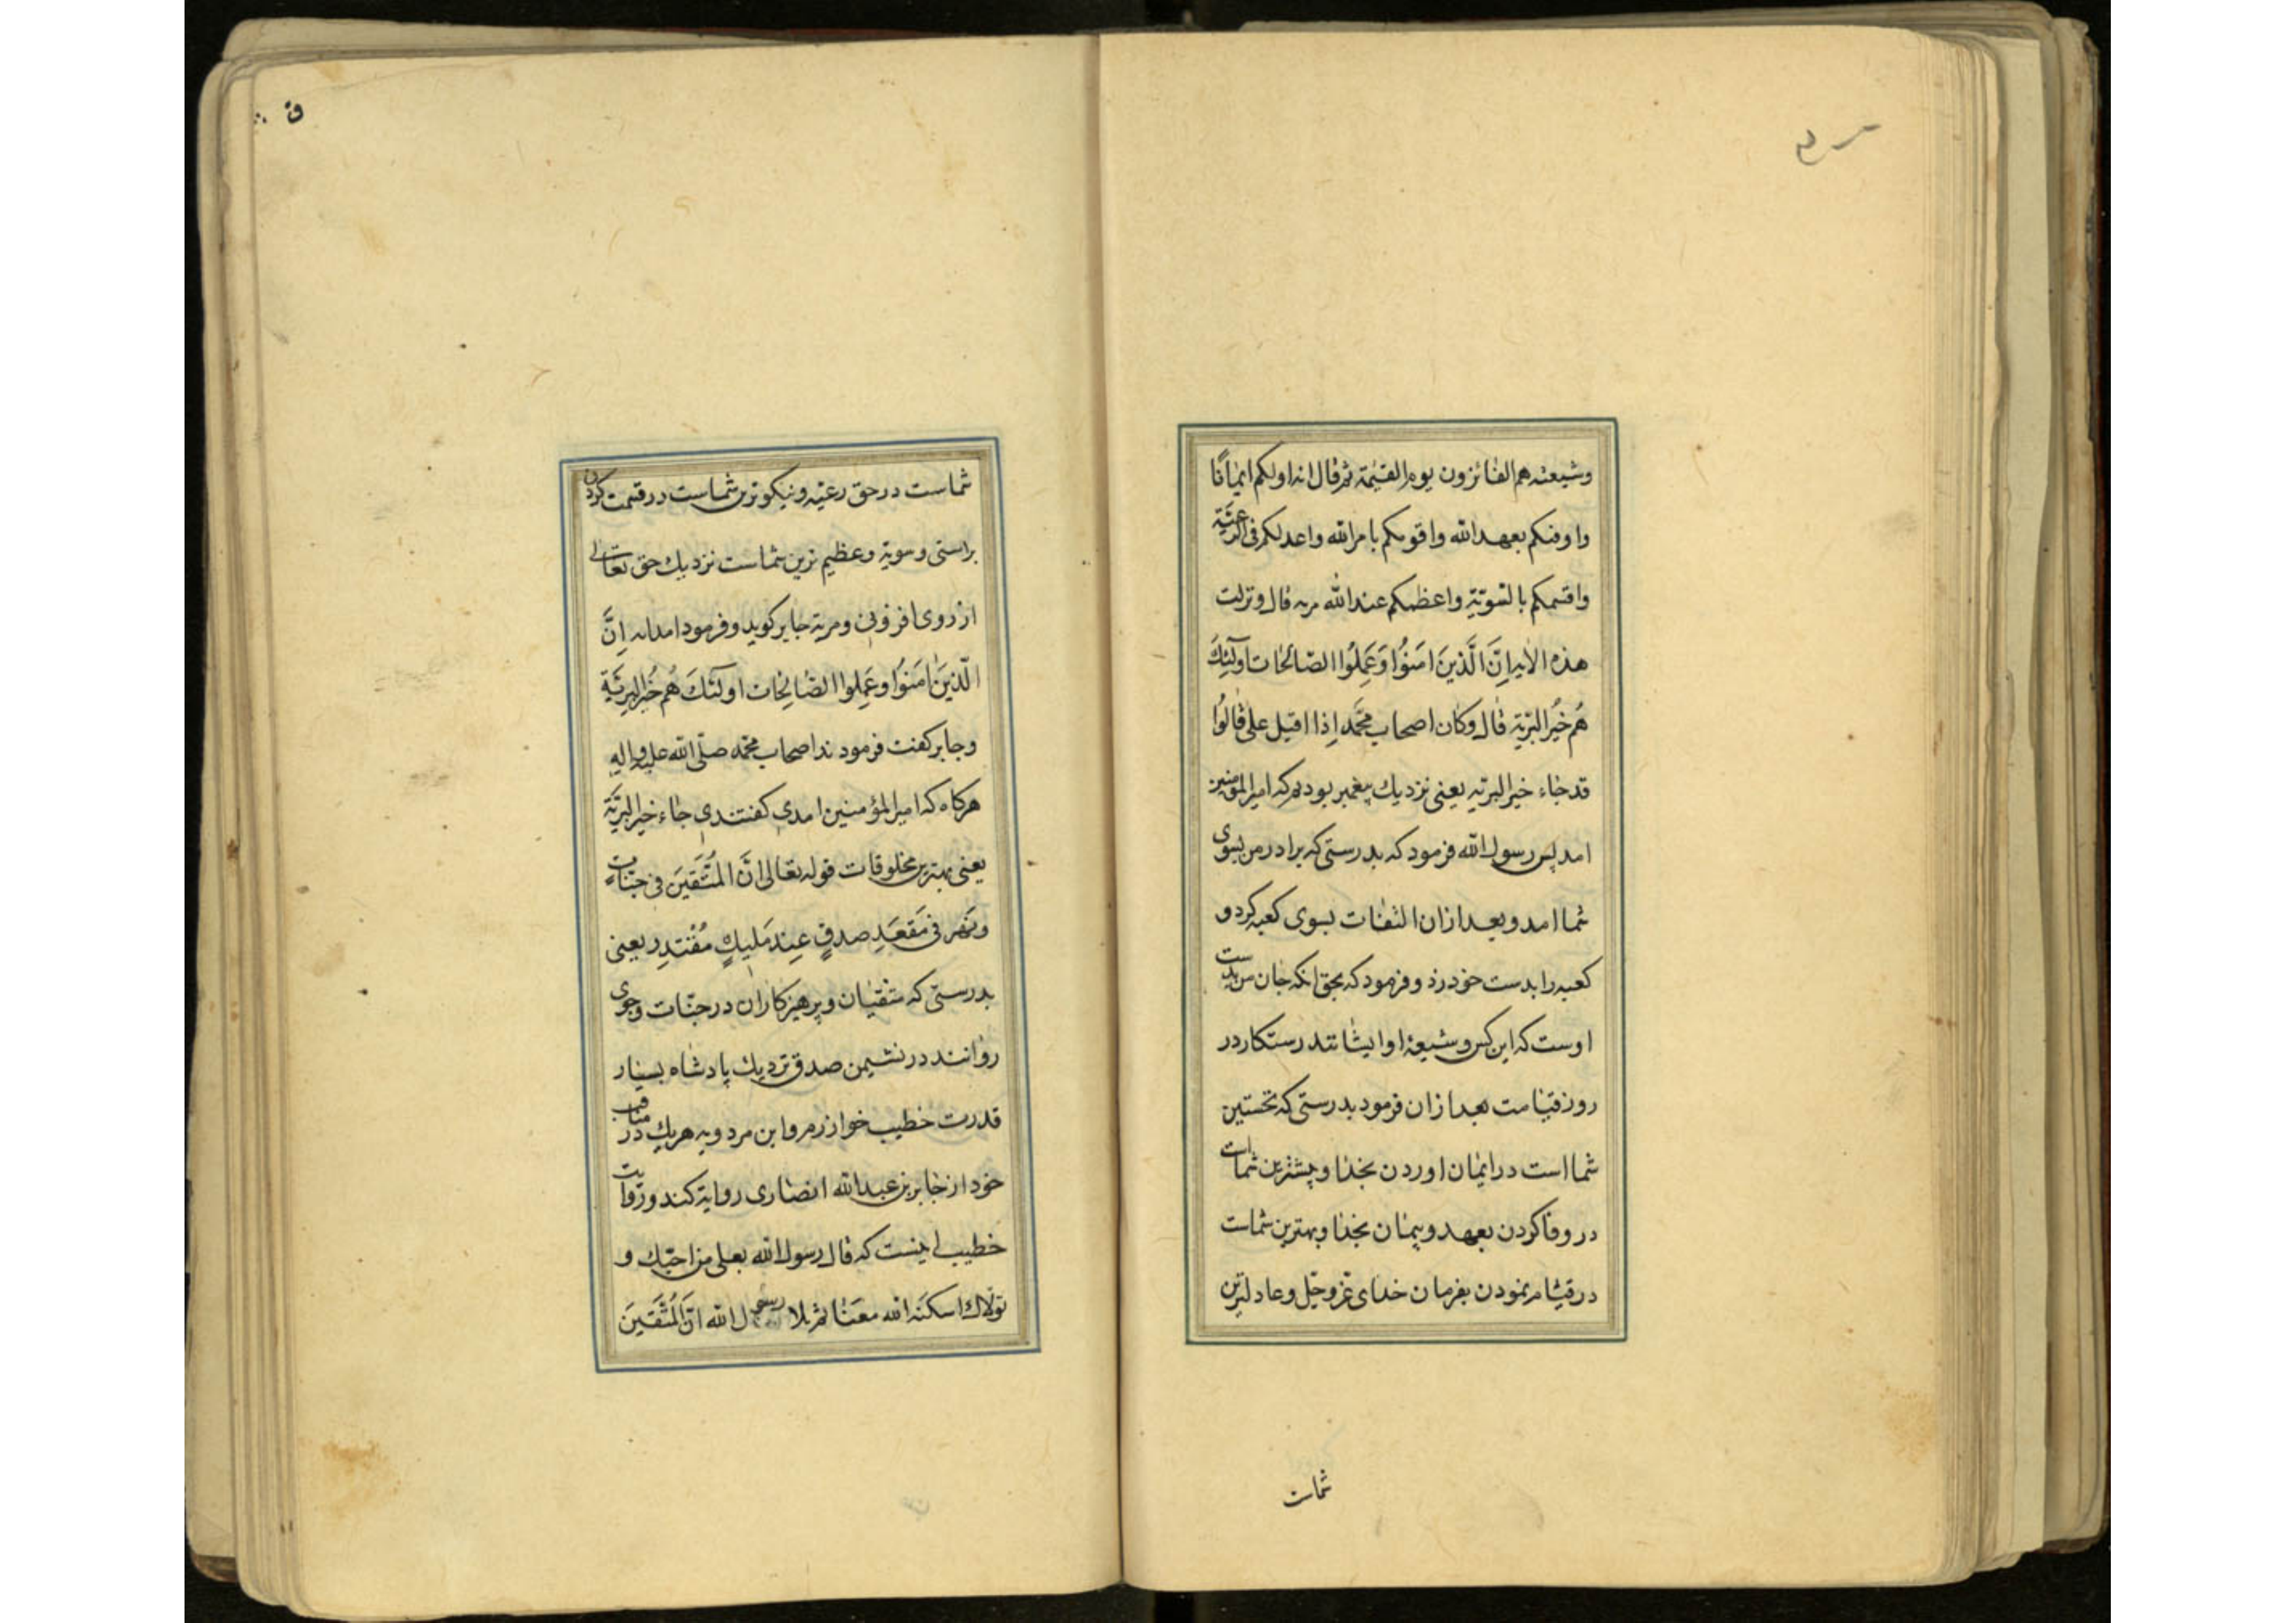 وشیعته هم الفائزون یوم القیٰمة ثم قال انه اولکم ایمانًا
واوفٰکم بعهد الله واقومکم بامر الله واعدلکم فی الرّعیّة
واقسمکم بالسّویّة واعظمکم عند الله مزیه قال ونزلت
هذه الآیه اِنَّ الَّذینَ امَنُوا وَعَمِلُوا الصّالحٰات اولٰئِکَ
هُم خَیُر البَریّه قٰال وکان اصحاب محمّد اِذا اقبل علی قٰالُوا
قد جٰاء خیر البریّه یعنی نزدیک پیغمبر بودم که امیر المؤمنین
امد پس رسول الله فرمود که بدرستی که برادر من بسوی
شما امد و بعد ازان التفات بسوی کعبه کرد و
کعبه را بدست خود زد و فرمود که بحق انکه جان من بدست
اوست که این کس و شیعهٔ او ایشانند رستکار در
روز قیامت بعد ازان فرمود بدرستی که نخستین
شما است در ایمان اوردن بخدا و بیشترین شماست
در وفا کردن بعهد و پیمان بخدا و بهترین شماست
در قیام نمودن بفرمان خدای عزّ وجلّ و عادلترین
شماست
شماست در حق رعیّه و نیکوترین شماست در قسمت کردن
براستی و سویّه و عظیم ترین شماست نزدیک حق تعالی
از روی افزونی و مزیة جابر کوید و فرمود امد ایه اِنَّ
الّذینَ اٰمَنُوا وعَمِلوا الصّالِحات اولٰئکَ هُم خَیُر البریَّة
وجابر کفت فرمودند اصحاب محمّد صلّی الله علیه واله
هرکاه که امیر المؤمنین امدی کفتندی جٰاء خیر البریَّة
یعنی بهترین مخلوقات قوله تعالی انَّ المُتَّقینَ فی جنّاتٍ
ونَهَر فی مَقعَدِ صدقٍ عِندَ مَلیکٍ مُقتَدِر یعنی
بدرستی که متقیان و پرهیزکاران در جنّات و جوی
روانند در نشیمن صدق نزدیک پادشاه بسیار
قدرت خطیب خوارزم و ابن مردویه هریک در مناقب
خود از جابر بن عبد الله انصاری روایة کند و روایت
خطیب اینست که قال رسول الله بعلی من احبّک و
تولّاک اسکنه الله معَنٰا ثم تلا رسول الله انّ المُتَّقینَ